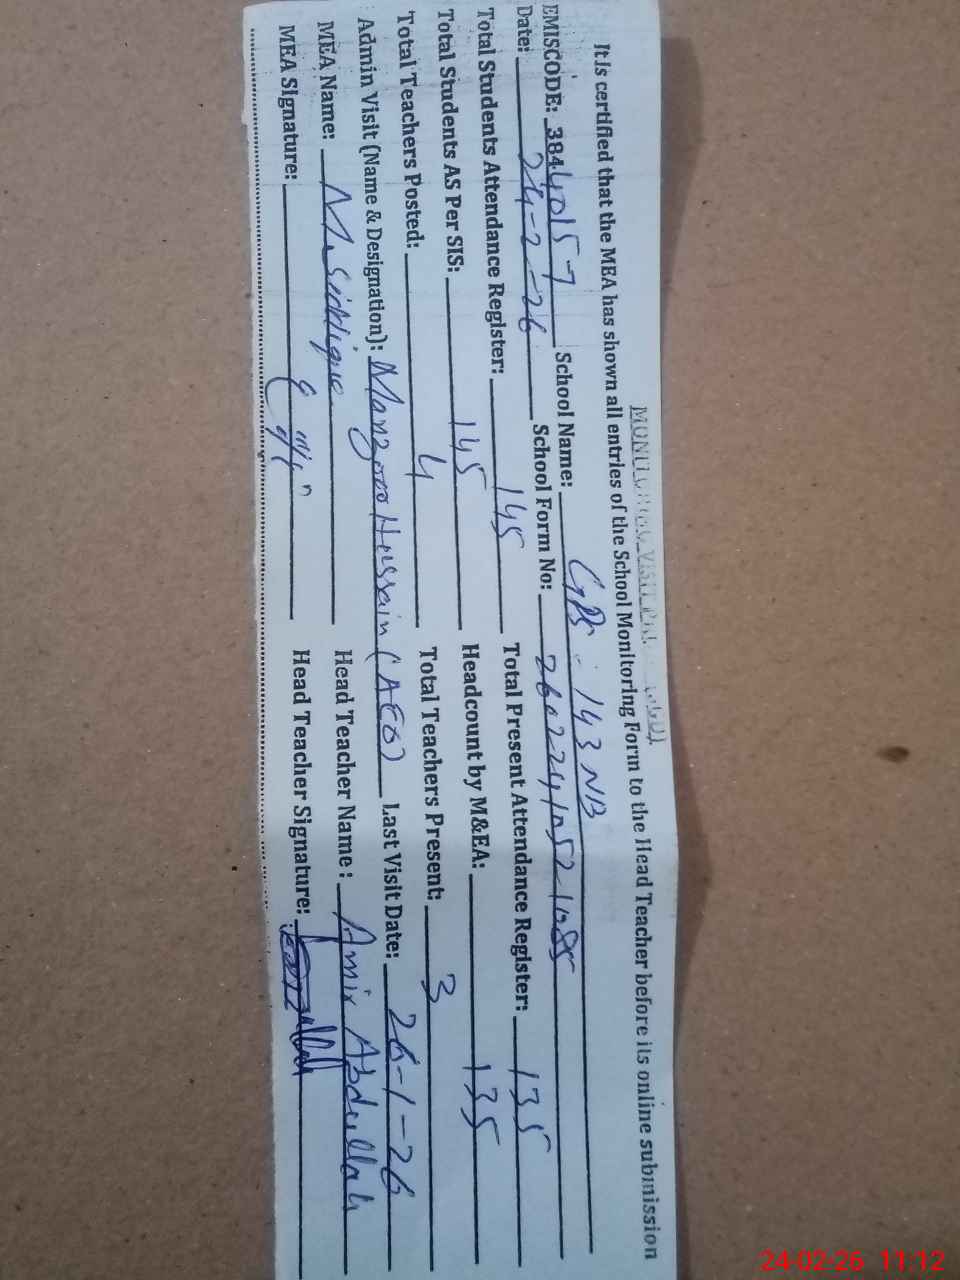 MONITORING VISIT
It is certified that the MEA has shown all entries of the School Monitoring Form to the Head Teacher before its online submission
EMISCODE: 38440157 School Name: GPS - 143 NB
Date: 24-2-26 School Form No:
Total Students Attendance Register: 145 Total Present Attendance Register: 135
Total Students AS Per SIS: 145 Headcount by M&EA: 135
Total Teachers Posted: 4 Total Teachers Present: 3
Admin Visit (Name & Designation): Manzoor Hussain (AEO) Last Visit Date: 26-1-26
MEA Name: M. Siddique Head Teacher Name : Amir Abdullah
MEA Signature: Head Teacher Signature:
24-02-26 11:12